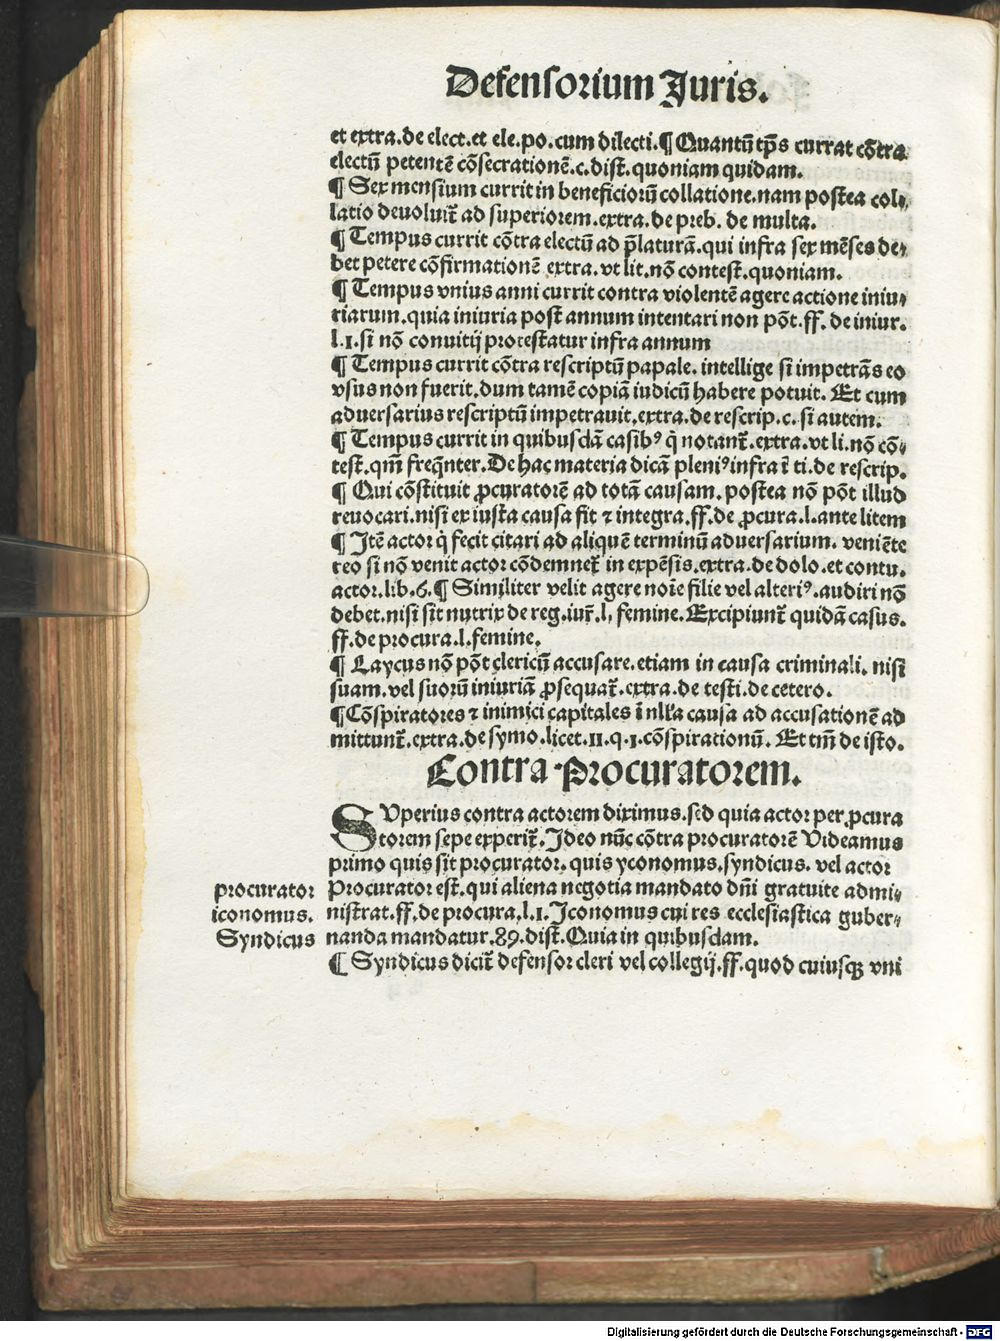 Defensorium Juris.
et extra.de elect.et ele.po.cum dilecti.¶ Quantũ tp̃s currat cõtra
electũ petentẽ cõsecrationẽ.c.dist.quoniam quidam.
¶ Sex mensium currit in beneficiorũ collatione.nam postea col-
latio deuoluit̃ ad superiorem.extra.de preb. de multa.
¶ Tempus currit cõtra electũ ad p̃laturã.qui infra sex mẽses de-
bet petere cõfirmationẽ extra.vt lit.nõ contest.quoniam.
¶ Tempus vnius anni currit contra violentẽ agere actione iniu-
riarum.quia iniuria post annum intentari non põt.ff.de iniur.
l.1.si nõ conuitij protestatur infra annum
¶ Tempus currit cõtra rescriptũ papale. intellige si impetrãs eo
vsus non fuerit.dum tamẽ copiã iudicũ habere potuit. Et cum
aduersarius rescriptũ impetrauit.extra.de rescrip.c.si autem.
¶ Tempus currit in quibusdã casibꝰ q̃ notant̃.extra.vt li.nõ cõ-
test.qm̃ freq̃nter.De hac materia dicã pleniꝰ infra ĩ ti.de rescrip.
¶ Qui cõstituit ꝓcuratorẽ ad totã causam.postea nõ põt illud
reuocari.nisi ex iusta causa fit ⁊ integra.ff.de ꝓcura.l.ante litem
¶ Itẽ actor q̃ fecit citari ad aliquẽ terminũ aduersarium. veniẽte
reo si nõ venit actor cõdemnet̃ in expẽsis.extra.de dolo.et contu.
actor.lib.6.¶ Similiter velit agere noĩe filie vel alteriꝰ.audiri nõ
debet.nisi sit nutrix de reg.iur̃.l. femine.Excipiunt̃ quidã casus.
ff.de procura.l.femine.
¶ Laycus nõ põt clericũ accusare.etiam in causa criminali. nisi
suam.vel suorũ iniuriã ꝓsequat̃.extra.de testi.de cetero.
¶ Cõspiratores ⁊ inimici capitales ĩ nlla causa ad accusationẽ ad
mittunt̃.extra.de symo.licet.11.q.1.cõspirationũ. Et tm̃ de isto.
Contra Procuratorem.
SVperius contra actorem diximus.sed quia actor per ꝓcura
torem sepe experit̃.Ideo nũc cõtra procuratorẽ Videamus
primo quis sit procurator.quis yconomus.syndicus. vel actor
procurator Procurator est.qui aliena negotia mandato dñi gratuite admi-
iconomus. nistrat.ff.de procura.l.1.Iconomus cui res ecclesiastica guber-
Syndicus nanda mandatur.89.dist.Quia in quibusdam.
¶ Syndicus dicit̃ defensor cleri vel collegij.ff.quod cuiusqꝫ vni
Digitalisierung gefördert durch die Deutsche Forschungsgemeinschaft - DFG